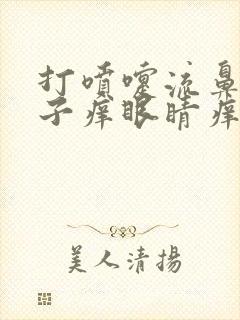 打喷嚏流鼻
子痒眼睛痒
美人清揚